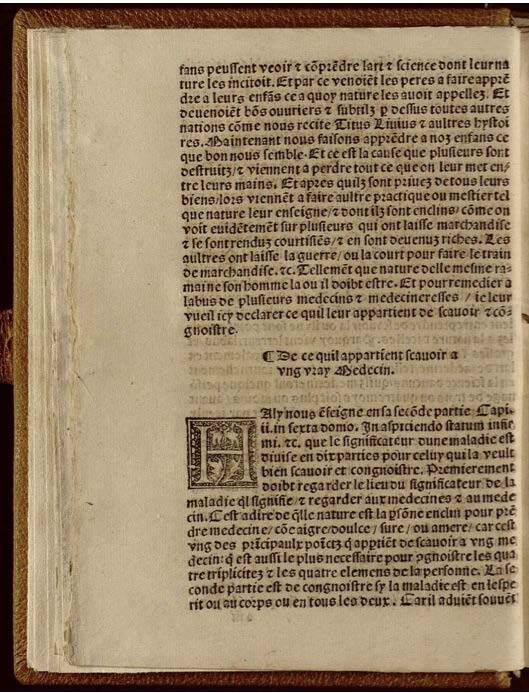 fans peussent veoir ⁊ cõprẽdre lart ⁊ science dont leur na
ture les incitoit. Et par ce venoiẽt les peres a faire apprẽ
dre a leurs enfãs ce a quoy nature les auoit appellez. Et
deuenoiẽt bõs ouuriers ⁊ subtilz p dessus toutes autres
nations cõme nous recite Titus Liuius ⁊ aultres hystoi
res. Maintenant nous faisons apprẽdre a noz enfans ce
que bon nous semble. Et ce est la cause que plusieurs sont
destruitz/⁊ viennent a perdre tout ce que on leur met en-
tre leurs mains. Et apres quilz sont priuez de tous leurs
biens/lors viennẽt a faire aultre practique ou mestier tel
que nature leur enseigne/⁊ dont ilz sont enclins/ cõme on
voit euidẽtemẽt sur plusieurs qui ont laisse marchandise
⁊ se sont renduz courtisiẽs/⁊ en sont deuenuz riches. Les
aultres ont laisse la guerre/ ou la court pour faire le train
de marchandise. ⁊c. Tellemẽt que nature delle mesme ra-
maine son homme la ou il doibt estre. Et pour remedier a
labus de plusieurs medecins ⁊ medecineresses / ie leur
vueil icy declarer ce quil leur appartient de scauoir ⁊ cõ-
gnoistre.
¶ De ce quil appartiẽt scauoir a
vng vray Medecin.
HAly nous ẽseigne en sa secõde partie Capi-
ii. in sexta domo. In aspiciendo statum infir
mi. ⁊c. que le significateur dune maladie est
diuise en dix parties pour celuy qui la veult
bien scauoir et congnoistre. Premierement
doibt regarder le lieu du significateur de la
maladie ql signifie/ ⁊ regarder aux medecines ⁊ au mede
cin. Cest adire de q̃lle nature est la psõne enclin pour prẽ
dre medecine/ cõe aigre/doulce / sure / ou amere/ car cest
vng des prĩcipaulx poĩctz q̃ apptiẽt de scauoir a vng me
decin: q̃ est aussi le plus necessaire pour pgnoistre les qua
tre triplicitez ⁊ les quatre elemens de la personne. La se
conde partie est de congnoistre sy la maladie est en lespe
rit ou au corps ou en tous les deux. Car il aduiẽt souuẽt